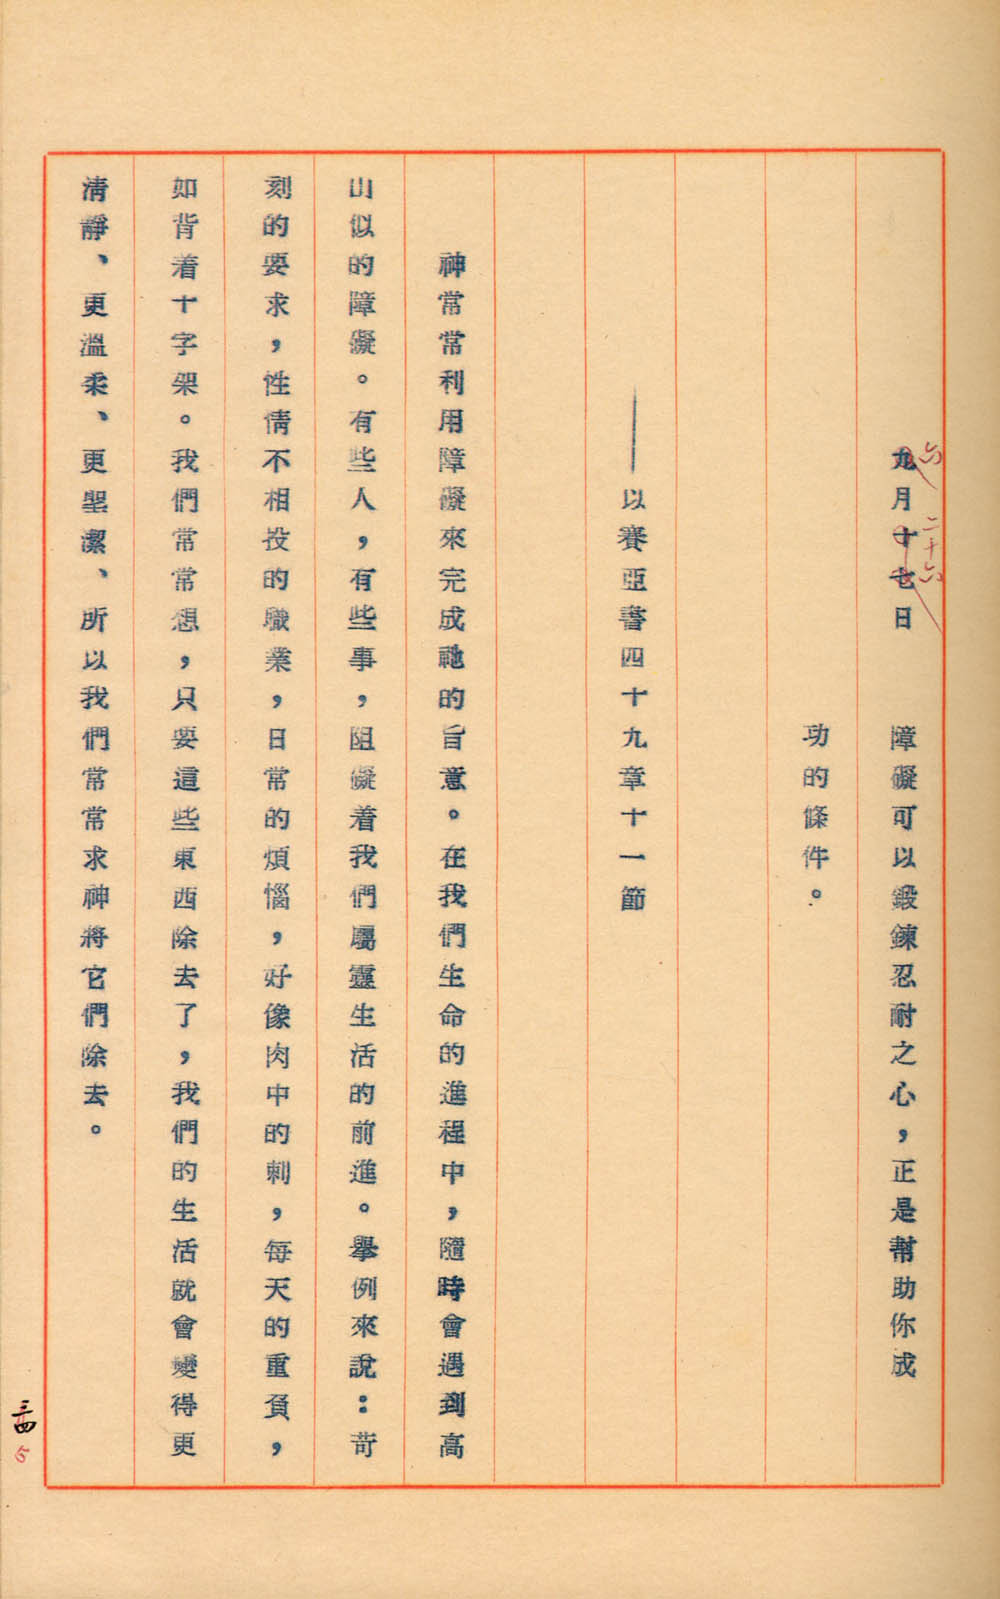 九月十七日　障礙可以鍛鍊忍耐之心，正是幫助你成
六　二十六
功的條件。
——以賽亞書四十九章十一節
神常常利用障礙來完成祂的旨意。在我們生命的進程中，隨時會遇到高
山似的障礙。有些人，有些事，阻礙着我們屬靈生活的前進。舉例來說：苛
刻的要求，性情不相投的職業，日常的煩惱，好像肉中的刺，每天的重負，
如背着十字架。我們常常想，只要這些東西除去了，我們的生活就會變得更
清靜、更溫柔、更聖潔、所以我們常常求神將它們除去。
三四
5